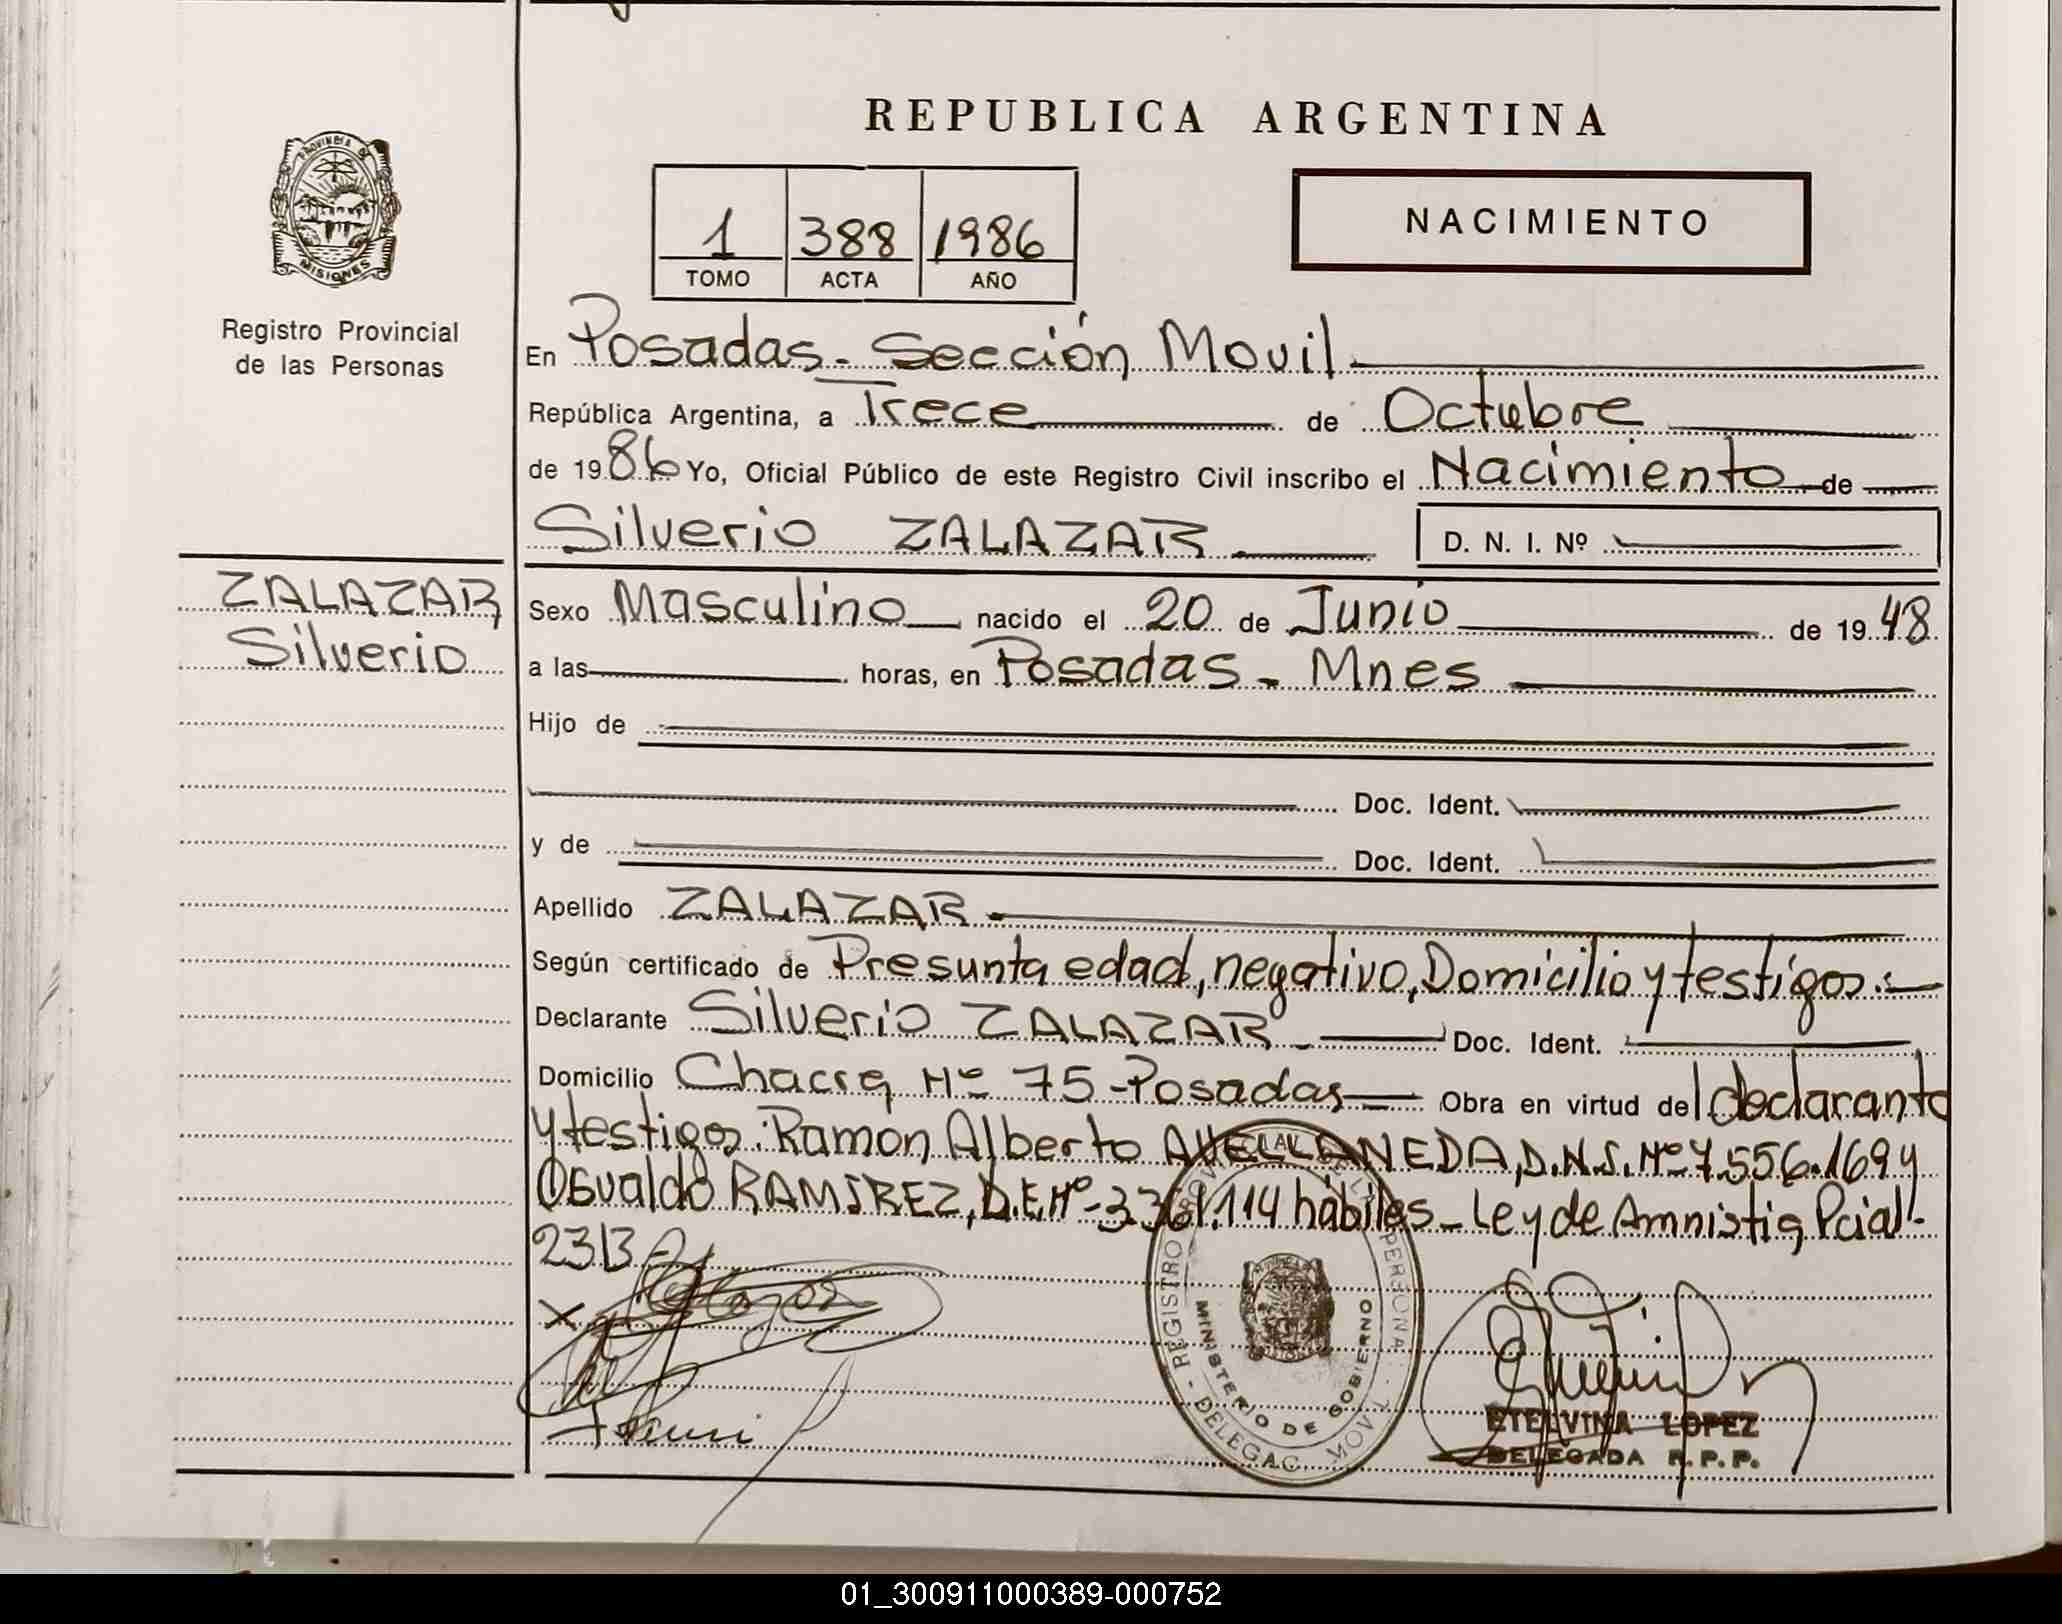 REPUBLICA ARGENTINA
PROVINCIA DE
MISIONES
Registro Provincial
de las Personas
1 388 1986
TOMO ACTA AÑO
NACIMIENTO
En Posadas - Sección Movil
República Argentina, a Trece de Octubre
de 1986 Yo, Oficial Público de este Registro Civil inscribo el Nacimiento de
Silverio ZALAZAR D. N. I. Nº
ZALAZAR
Silverio
Sexo Masculino nacido el 20 de Junio de 1948
a las horas, en Posadas - Mnes
Hijo de
Doc. Ident.
y de Doc. Ident.
Apellido ZALAZAR
Según certificado de Presunta edad, negativo, Domicilio y testigos.-
Declarante Silverio ZALAZAR Doc. Ident.
Domicilio Chacra Nº 75 - Posadas Obra en virtud del declarante
y testigos: Ramon Alberto AVELLANEDA, D.N.I. Nº 7.556.169 y
Osvaldo RAMIREZ, D.E. Nº 3.361.114 hábiles - Ley de Amnistia Pcial.
2313
REGISTRO PROVINCIAL DE LAS PERSONAS - DELEGAC. MOVIL
MINISTERIO DE GOBIERNO
ETELVINA LOPEZ
DELEGADA R.P.P.
01_300911000389-000752